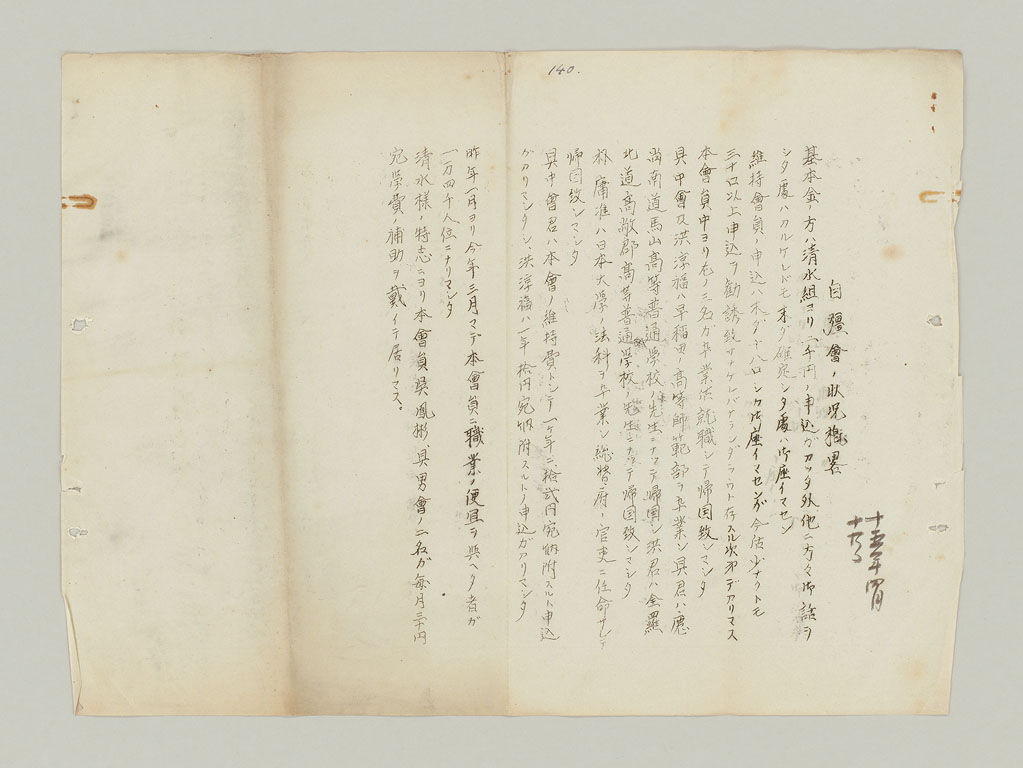 140.
自彊會ノ狀況槪畧
基本金ノ方ハ清水組ヨリ一千円ノ申込ガアッタ外他ニ方々御話ヲ
シタ處ハアルケレドモ未ダ確定シタ處ハ御座イマセン
維持會員ノ申込ハ未ダ十八口シカ御座イマセンガ今後少ナクトモ
三十口以上申込ヲ勧誘致サナケレバナランダラウト存スル次第デアリマス
本會員中ヨリ左ノ三名ガ卒業後就職シテ帰国致シマシタ
具中會及洪淳福ハ早稲田高等師範部ヲ卒業シ具君ハ慶
尚南道馬山高等普通学校ノ先生ニナッテ帰国シ洪君ハ全羅
北道高敞郡高等普通学校ノ先生ニナッテ帰国致シマシタ
朴庸淮ハ日本大学ノ法科ヲ卒業シ総督府ノ官吏ニ任命サレテ
帰国致シマシタ
具中會君ハ本會ノ維持費トシテ一ケ年ニ拾弐円宛納附スルト申込
ガアリマシタシ、洪淳福ハ一年ノ拾円宛納附スルトノ申込ガアリマシタ
昨年一月ヨリ今年三月マデ本會員ニ職業ノ便宜ヲ與ヘタ者ガ
一万四千人位ニナリマシタ
清水様ノ特志ニヨリ本會員吳鳳彬、具男會ノ二名ガ毎月三十円
宛學費ノ補助ヲ戴イテ居リマス。